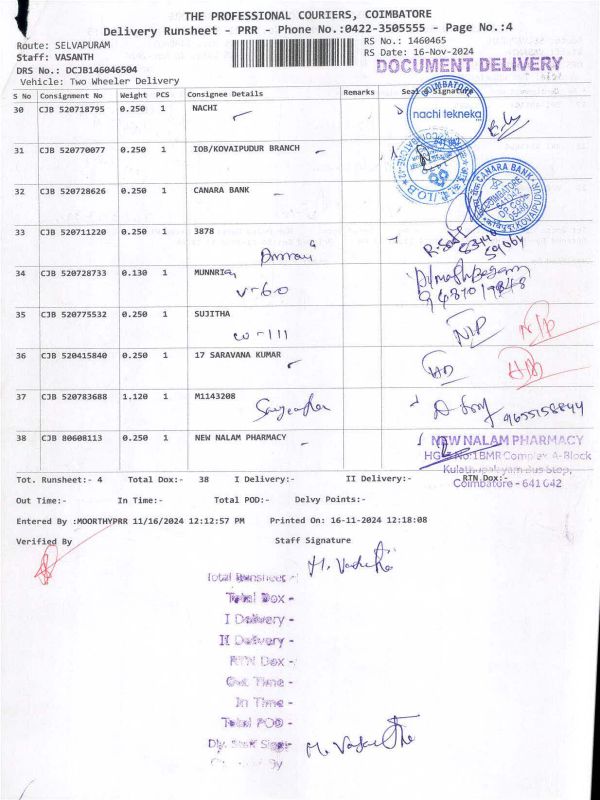 THE PROFESSIONAL COURIERS, COIMBATORE
Delivery Runsheet - PRR - Phone No.:0422-3505555 - Page No.:4
Route: SELVAPURAM
RS No.: 1460465
Staff: VASANTH
RS Date: 16-Nov-2024
DRS No.: DCJB146046504
DOCUMENT DELIVERY
Vehicle: Two Wheeler Delivery
S No Consignment No Weight PCS Consignee Details Remarks Seal & Signature
30 CJB 520718795 0.250 1 NACHI
COIMBATORE
nachi tekneka
31 CJB 520770077 0.250 1 IOB/KOVAIPUDUR BRANCH
32 CJB 520728626 0.250 1 CANARA BANK
CANARA BANK
COIMBATORE
33 CJB 520711220 0.250 1 3878
83440
59064
34 CJB 520728733 0.130 1 MUNNRI
V-60
35 CJB 520775532 0.250 1 SUJITHA
W-111
N/P N/P
36 CJB 520415840 0.250 1 17 SARAVANA KUMAR
37 CJB 520783688 1.120 1 M1143208
9655158844
38 CJB 80608113 0.250 1 NEW NALAM PHARMACY
NEW NALAM PHARMACY
BMR Complex A-Block
Kulathupalayam Bus Stop,
Coimbatore - 641 042
Tot. Runsheet:- 4 Total Dox:- 38 I Delivery:- II Delivery:- RTN Dox:-
Out Time:- In Time:- Total POD:- Delvy Points:-
Entered By :MOORTHYPRR 11/16/2024 12:12:57 PM Printed On: 16-11-2024 12:18:08
Verified By Staff Signature
Total Runsheet -
Total Dox -
I Delivery -
II Delivery -
RTN Dox -
Out Time -
In Time -
Total POD -